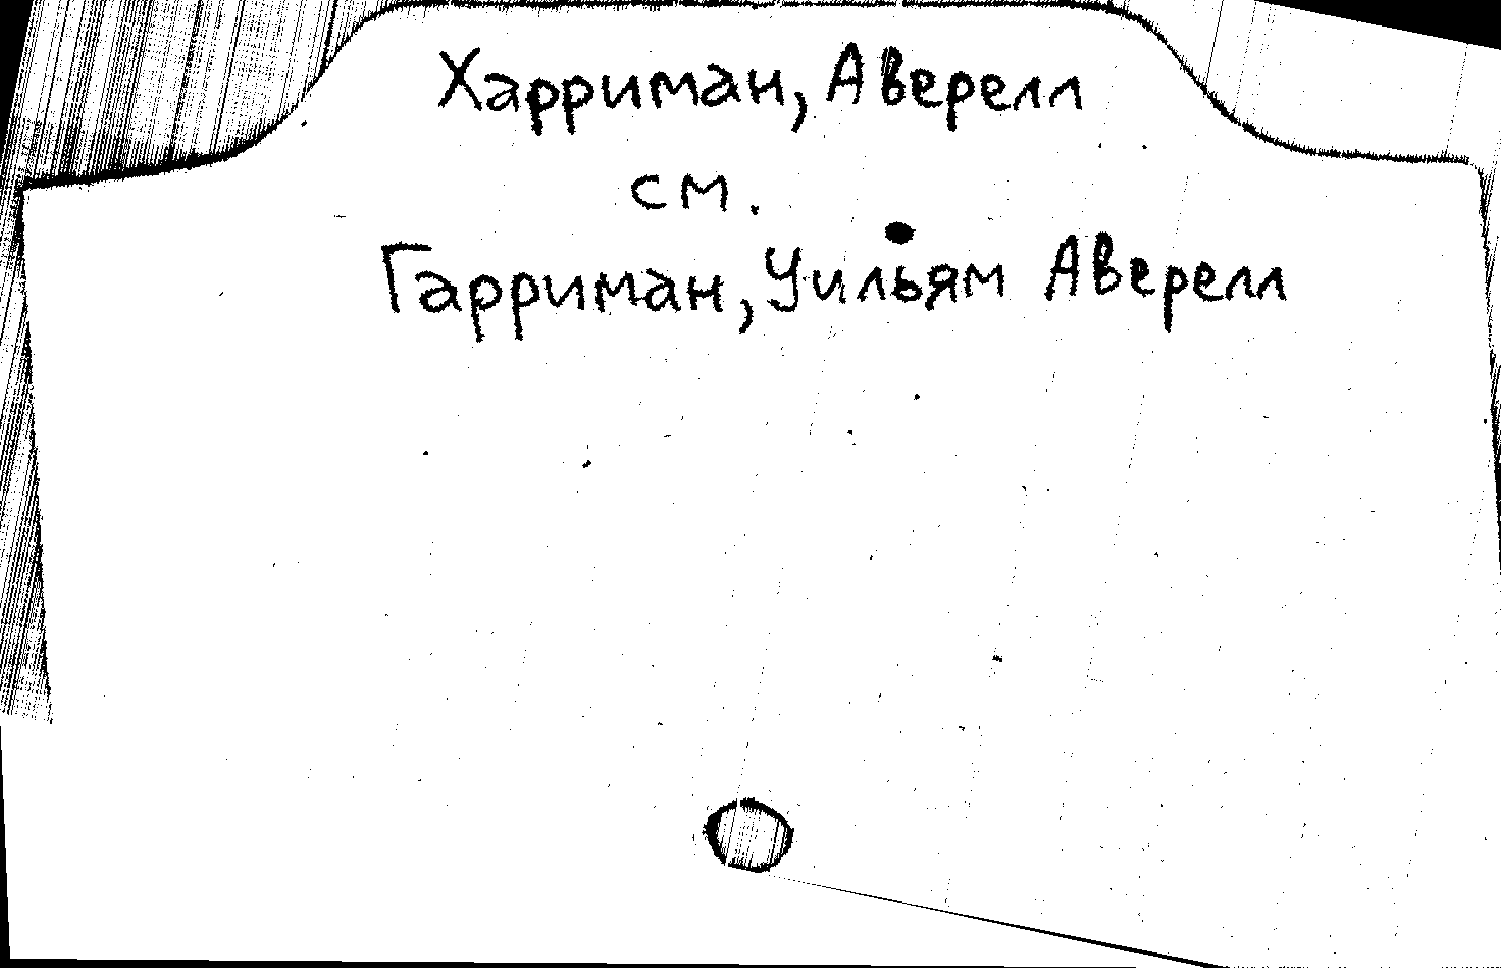 Харриман, Аверелл
см.
Гарриман, Уильям Аверелл